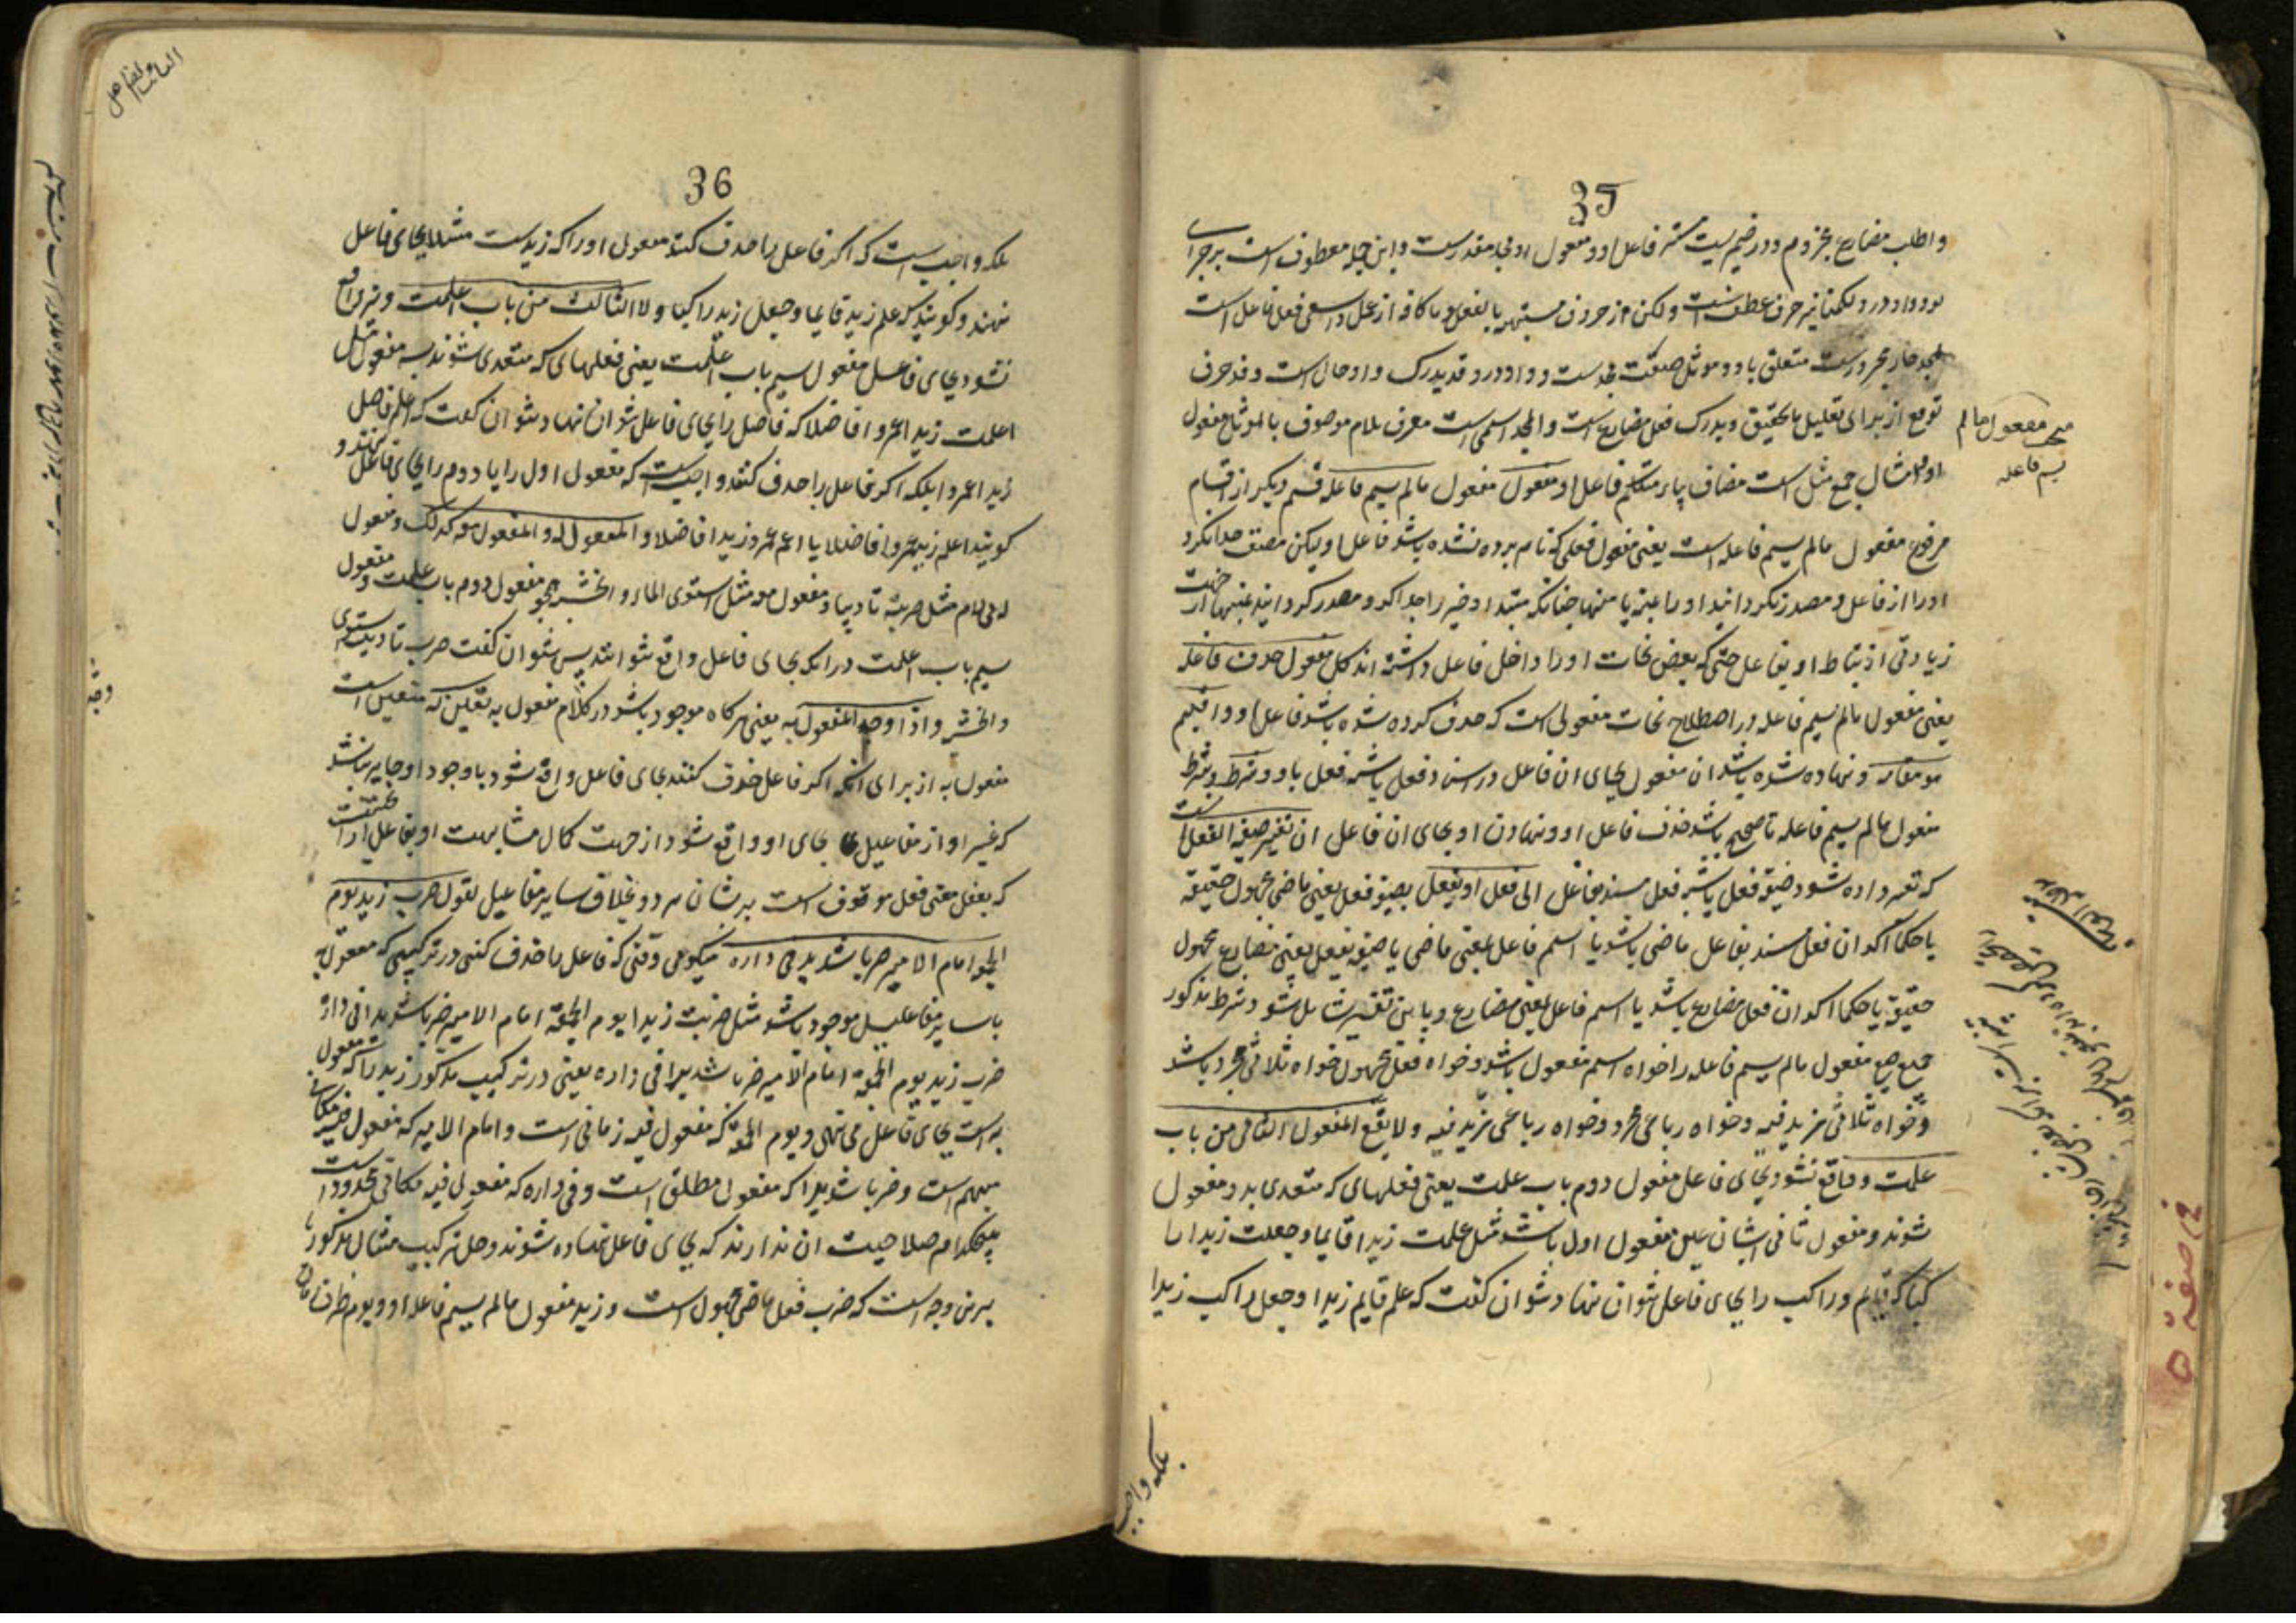 35
واطلب مضارع مجزوم ودر ضمیریست مستتر فاعل او و مفعول او مجد مقدرست واین جمله معطوف است بر جزای
لو وواو در ولکنما نیز حرف عطف است ولکن از حروف مشبهه بالفعل وما کافه از عمل واسعی فعل فاعل است
لمجد جار مجرورست متعلق باو و موثل صفت مجدست وواو در وقد یدرک واو حال است وقد حرف
توقع از برای تقلیل یا تحقیق ویدرک فعل مضارع است والمجد اسمی است معرف بلام موصوف بالموثل مفعول
او وامثالی جمع مثل است مضاف بیاء متکلم فاعل او مفعول مفعول مالم یسم فاعله قسم دیگر از اقسام
مرفوع مفعول مالم یسم فاعله است یعنی مفعول فعلی که نام برده نشده باشد فاعل او ولیکن مصنف جدا نکرد
اورا از فاعل و مصدر نکردانید اورا بمنه یا منها چنانکه مبتدا وخبر را جدا کرد و مصدر کردانید بمنها از جهت
زیادتی ارتباط او بفاعل حتی که بعض نحات اورا داخل فاعل داشته اند کل مفعول حذف فاعله
یعنی مفعول مالم یسم فاعله در اصطلاح نحات مفعولی است که حذف کرده شده باشد فاعل او واقیم
هو مقامه ونهاده شده باشد ان مفعول بجای ان فاعل در اسناد فعل یا شبه فعل باو وشرطه وشرط
مفعول مالم یسم فاعله تا صحیح باشد حذف فاعل او ونهادن او بجای ان فاعل ان تغیر صیغة الفعل انست
که تغیر داده شود صیغه فعل یا شبه فعل مسند بفاعل الی فعل او یفعل بصیغه فعل یعنی ماضی مجهول حقیقة
یا حکما اکر ان فعل مسند بفاعل ماضی باشد یا اسم فاعل بمعنی ماضی یا صیغه یفعل یعنی مضارع مجهول
حقیقة یا حکما اکر ان فعل مضارع باشد یا اسم فاعل بمعنی مضارع وباین تفسیر شامل شود شرط مذکور
جمیع صیغ مفعول مالم یسم فاعله را خواه اسم مفعول باشد وخواه فعل مجهول خواه ثلاثی مجرد باشد
وخواه ثلاثی مزید فیه وخواه رباعی مجرد وخواه رباعی مزید فیه ولا یقع المفعول الثانی من باب
علمت وواقع نشود بجای فاعل مفعول دوم باب علمت یعنی فعلهای که متعدی بدو مفعول
شوند ومفعول ثانی ایشان عین مفعول اول باشد مثل علمت زیدا قایما وجعلت زیدا را
کبا که قایم وراکب را بجای فاعل نتوان نهاد ونتوان کفت که علم قایم زیدا وجعل راکب زیدا
مبحث مفعول مالم
یسم فاعله
بلکه واجب
36
بلکه واجب است که اکر فاعل را حذف کنند مفعول اورا که زیدست مثلا بجای فاعل
نهند وکویند که علم زید قایما وجعل زید راکبا ولا الثالث من باب اعلمت ونیز واقع
نشود بجای فاعل مفعول سیم باب اعلمت یعنی فعلهای که متعدی شوند بسه مفعول مثل
اعلمت زیدا عمروا فاضلا که فاضل را بجای فاعل نتوان نهاد ونتوان کفت که اعلم فاضل
زیدا عمروا بلکه اکر فاعل را حذف کنند واجب است که مفعول اول را یا دوم را بجای فاعل نهند و
کویند اعلم زید عمروا فاضلا یا اعلم عمرو زیدا فاضلا والمفعول له والمفعول معه کذلک ومفعول
له بی لام مثل ضربته تادیبا ومفعول معه مثل استوی الماء والخشبة همچو مفعول دوم باب علمت ومفعول
سیم باب اعلمت در انکه بجای فاعل واقع نتوانند پس نتوان کفت ضرب تادیب واستوی
والخشبة واذا وجد المفعول به یعنی هرکاه موجود باشد در کلام مفعول به تعین له متعین است
مفعول به از برای انکه اکر فاعل حذف کنند بجای فاعل واقع شود باوجود او جایز نباشد
که غیر او از مفاعیل بجای او واقع شود از جهت کمال مشابهت او بفاعل از انجهت
که تعقل معنی فعل موقوف است بر ایشان هردو بخلاف سایر مفاعیل تقول ضرب زید یوم
الجمعة امام الامیر ضربا شدیدا فی داره میکوئی وقتی که فاعل را حذف کنی در ترکیبی که مفعول به
با سایر مفاعیل موجود باشد مثل ضربت زیدا یوم الجمعة امام الامیر ضربا شدیدا فی داره
ضرب زید یوم الجمعة امام الامیر ضربا شدیدا فی داره یعنی در ترکیب مذکور زید را که مفعول
به است بجای فاعل می نهی ویوم الجمعة که مفعول فیه زمانی است وامام الامیر که مفعول فیه مکانی
مبهم است وضربا شدیدا که مفعول مطلق است وفی داره که مفعول فیه مکانی محدود است
هیچکدام صلاحیت ان ندارند که بجای فاعل نهاده شوند وحل ترکیب مثال مذکور
برین وجه است که ضرب فعل ماضی مجهول است وزید مفعول مالم یسم فاعله او ویوم ظرف زمان